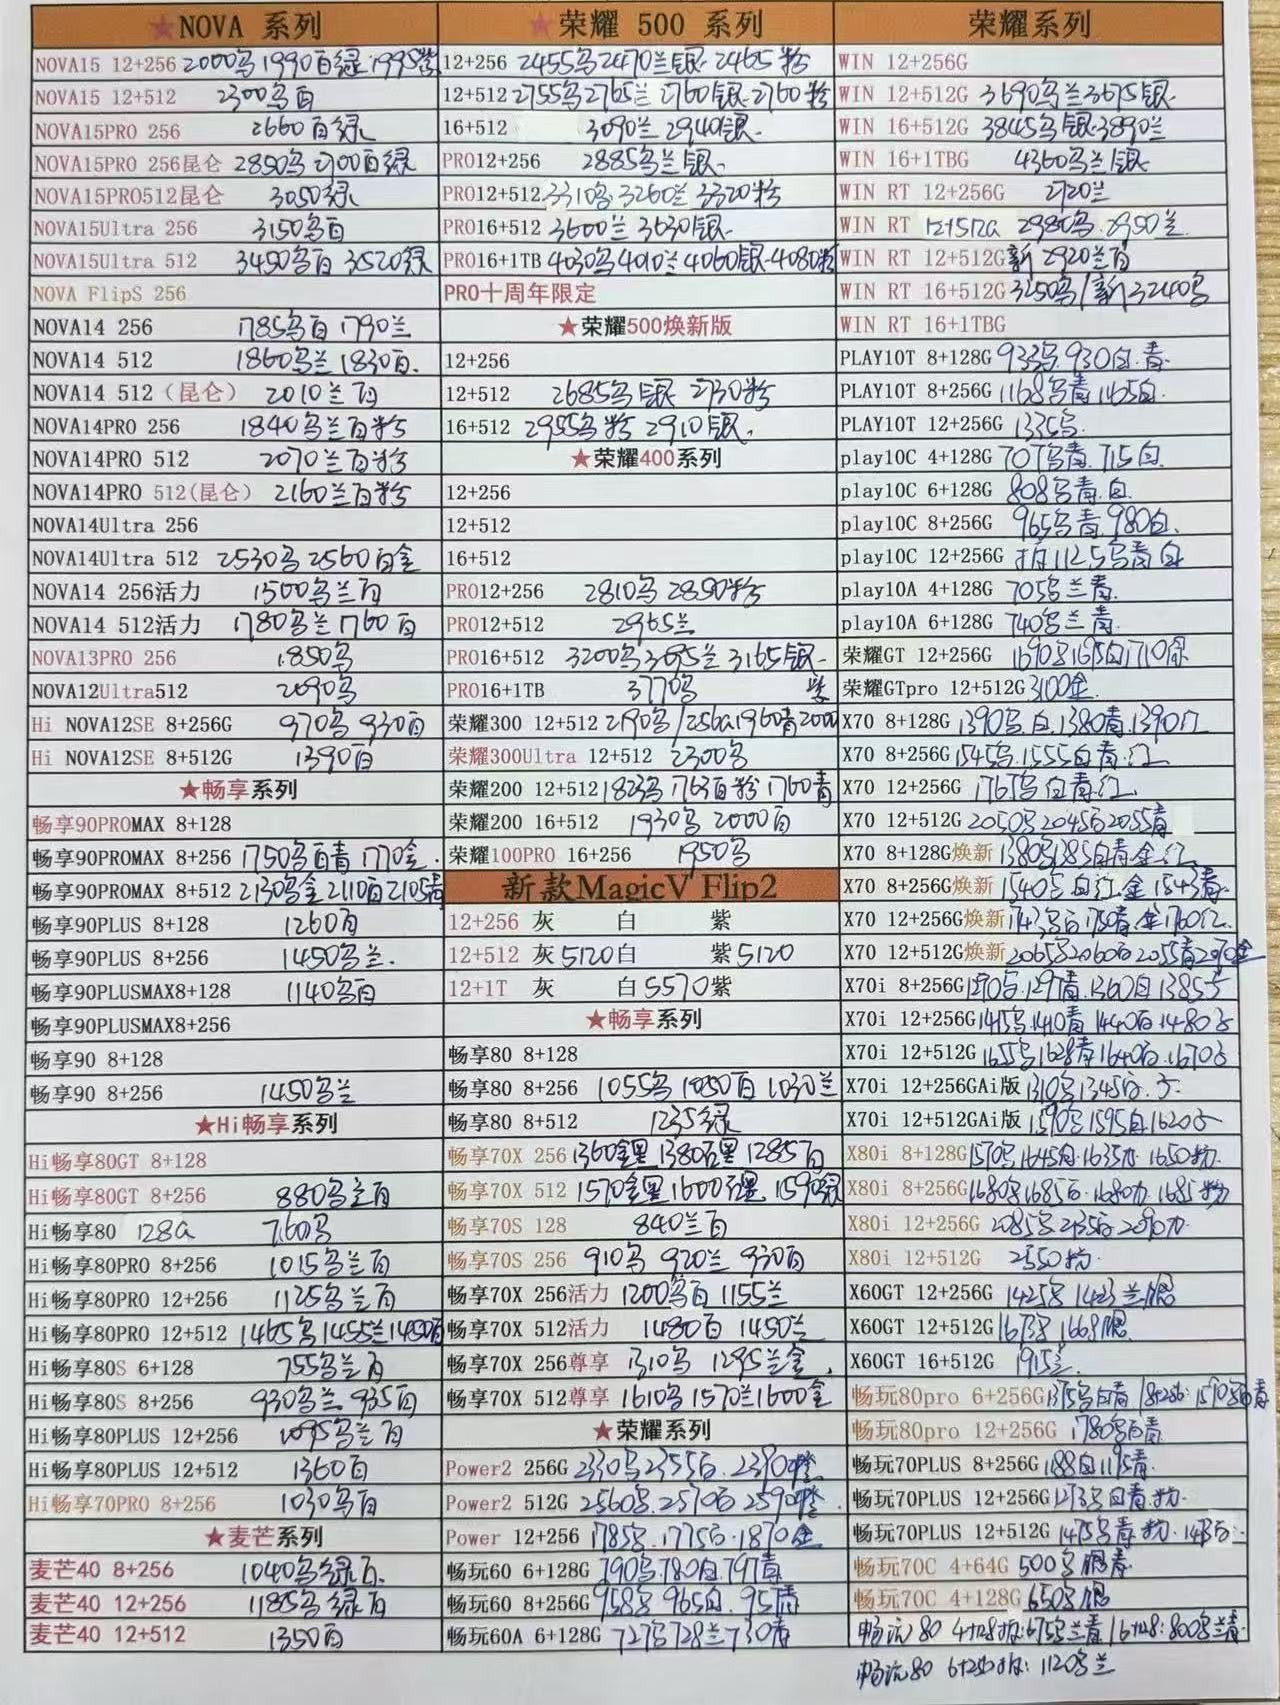 ★NOVA 系列
NOVA15 12+256 2000乌1990白绿1995紫
NOVA15 12+512 2300乌白
NOVA15PRO 256 2660白绿
NOVA15PRO 256昆仑 2850乌2700白绿
NOVA15PRO512昆仑 3050绿
NOVA15Ultra 256 3150乌白
NOVA15Ultra 512 3450乌白 3520绿
NOVA FlipS 256
NOVA14 256 1785乌白 1790兰
NOVA14 512 1860乌兰 1830白.
NOVA14 512（昆仑） 2010兰白
NOVA14PRO 256 1840乌兰白粉
NOVA14PRO 512 2070兰白粉
NOVA14PRO 512(昆仑) 2160兰白粉
NOVA14Ultra 256
NOVA14Ultra 512 2530乌 2560白金
NOVA14 256活力 1500乌兰白
NOVA14 512活力 1780乌兰 1760白
NOVA13PRO 256 1850乌
NOVA12Ultra512 2090乌
Hi NOVA12SE 8+256G 970乌 930白
Hi NOVA12SE 8+512G 1390白
★畅享系列
畅享90PROMAX 8+128
畅享90PROMAX 8+256 1750乌白青 1770金.
畅享90PROMAX 8+512 2130乌金2110白2105青
畅享90PLUS 8+128 1260白
畅享90PLUS 8+256 1450乌兰.
畅享90PLUSMAX8+128 1140乌白
畅享90PLUSMAX8+256
畅享90 8+128
畅享90 8+256 1450乌兰
★Hi畅享系列
Hi畅享80GT 8+128
Hi畅享80GT 8+256 880乌兰白
Hi畅享80 128G 760乌
Hi畅享80PRO 8+256 1015乌兰白
Hi畅享80PRO 12+256 1125乌兰白
Hi畅享80PRO 12+512 1465乌1455兰1450白
Hi畅享80S 6+128 755乌兰白
Hi畅享80S 8+256 930乌兰 935白
Hi畅享80PLUS 12+256 1095乌兰白
Hi畅享80PLUS 12+512 1360白
Hi畅享70PRO 8+256 1030乌白
★麦芒系列
麦芒40 8+256 1040乌绿白.
麦芒40 12+256 1185乌绿白
麦芒40 12+512 1350白
★荣耀 500 系列
12+256 2455乌2470兰银·2465粉
12+512 2755乌2765兰 2760银·2760粉
16+512 3090兰 2940银.
PRO12+256 2885乌兰银.
PRO12+512 3310乌 3260兰 3320粉
PRO16+512 3600兰 3630银.
PRO16+1TB 4030乌4010兰4060银·4080粉
PRO十周年限定
★荣耀500焕新版
12+256
12+512 2685乌银 2730粉
16+512 2955乌粉 2910银.
★荣耀400系列
12+256
12+512
16+512
PRO12+256 2810乌 2850粉
PRO12+512 2965兰
PRO16+512 3200乌3095兰 3165银.
PRO16+1TB 3770乌
荣耀300 12+512 2190乌/256G1960青2000紫
荣耀300Ultra 12+512 2300乌
荣耀200 12+512 1823乌1763白粉 1760青
荣耀200 16+512 1930乌 2000白
荣耀100PRO 16+256 1950乌
新款MagicV Flip2
12+256 灰 白 紫
12+512 灰5120白 紫5120
12+1T 灰 白5570紫
★畅享系列
畅享80 8+128
畅享80 8+256 1055乌 1050白 1030兰
畅享80 8+512 1235绿
畅享70X 256 1360金黑 1380白黑 1285白
畅享70X 512 1570金黑1600白黑 1590绿
畅享70S 128 840兰白
畅享70S 256 910乌 920兰 930白
畅享70X 256活力 1200乌白 1155兰
畅享70X 512活力 1480白 1450兰
畅享70X 256尊享 1310乌 1295兰金.
畅享70X 512尊享 1610乌1570兰1600金
★荣耀系列
Power2 256G 2330乌2355白.2390橙
Power2 512G 2560乌.2570白2590橙
Power 12+256 1785乌.1775白·1870金
畅玩60 6+128G 790乌.780白.797青
畅玩60 8+256G 958乌 965白.957青
畅玩60A 6+128G 727乌728兰730青
荣耀系列
WIN 12+256G
WIN 12+512G 3690乌兰3675银.
WIN 16+512G 3845乌银·3890兰
WIN 16+1TBG 4360乌兰银.
WIN RT 12+256G 2720兰
WIN RT 12+512G 2980乌.2950兰.
WIN RT 12+512G新2920兰白
WIN RT 16+512G3250乌/新3240乌
WIN RT 16+1TBG
PLAY10T 8+128G 933乌.930白.青
PLAY10T 8+256G 1168乌青1165白.
PLAY10T 12+256G 1335乌.
play10C 4+128G 707乌青.715白.
play10C 6+128G 808乌青.白
play10C 8+256G 965乌青.980白.
play10C 12+256G 拆1125乌青白
play10A 4+128G 705乌兰青.
play10A 6+128G 740乌兰青.
荣耀GT 12+256G 1690乌1695白1710绿
荣耀GTpro 12+512G3100金.
X70 8+128G 1390乌.白.1380青.1390红
X70 8+256G1545乌.1555白青.红
X70 12+256G 1767乌白青.红.
X70 12+512G 2050乌2045白2055青
X70 8+128G焕新 1380乌1385白青.金.红
X70 8+256G焕新 1540乌白红.金1543青.
X70 12+256G焕新1743乌白1750青.金1760红.
X70 12+512G焕新2065乌2060白2055青2070金
X70i 8+256G1290乌.1297青.1360白1385紫
X70i 12+256G1415乌1410青1440白1480紫
X70i 12+512G 1655乌1628青1640白.1670紫
X70i 12+256GAi版1310乌1345白.紫.
X70i 12+512GAi版1590乌1595白1620紫
X80i 8+128G1570乌1645白·1635力.1650粉.
X80i 8+256G1680乌1685白.1680力.1685粉
X80i 12+256G 2085乌2135白2090力.
X80i 12+512G 2550粉.
X60GT 12+256G 1425乌1423兰银
X60GT 12+512G1673乌1668银.
X60GT 16+512G 1915兰.
畅玩80pro 6+256G1375乌白青/8+256:1590乌白青
畅玩80pro 12+256G 1780乌白青.
畅玩70PLUS 8+256G1188白1195青.
畅玩70PLUS 12+256G1273乌白青.粉.
畅玩70PLUS 12+512G 1475乌青粉.1483白
畅玩70C 4+64G 500乌银青.
畅玩70C 4+128G 650乌银
畅玩80 4+128拆:675乌兰青/6+128:800乌兰青.
畅玩80 6+256拆:1120乌兰